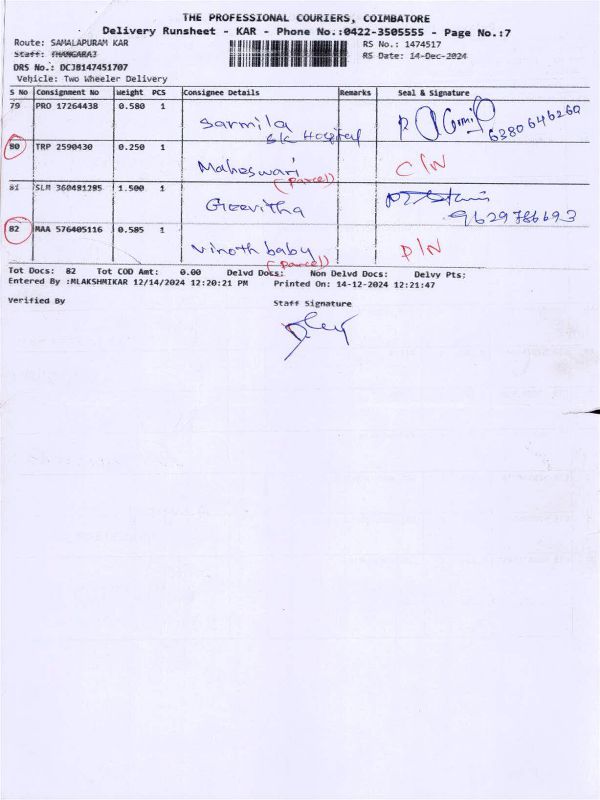 THE PROFESSIONAL COURIERS, COIMBATORE
Delivery Runsheet - KAR - Phone No.:0422-3505555 - Page No.:7
Route: SAMALAPURAM KAR RS No.: 1474517
Staff: THANGARAJ RS Date: 14-Dec-2024
DRS No.: DCJB147451707
Vehicle: Two Wheeler Delivery
S No Consignment No Weight PCS Consignee Details Remarks Seal & Signature
79 PRO 17264438 0.580 1 Sarmila
SK Hospital 6380646260
80 TRP 2590430 0.250 1 Maheswari C/N
(Parcel)
81 SLM 360481285 1.500 1 Geevitha
9629786693
82 MAA 576405116 0.585 1 Vinoth baby D/N
(Parcel)
Tot Docs: 82 Tot COD Amt: 0.00 Delvd Docs: Non Delvd Docs: Delvy Pts:
Entered By :MLAKSHMIKAR 12/14/2024 12:20:21 PM Printed On: 14-12-2024 12:21:47
Verified By Staff Signature